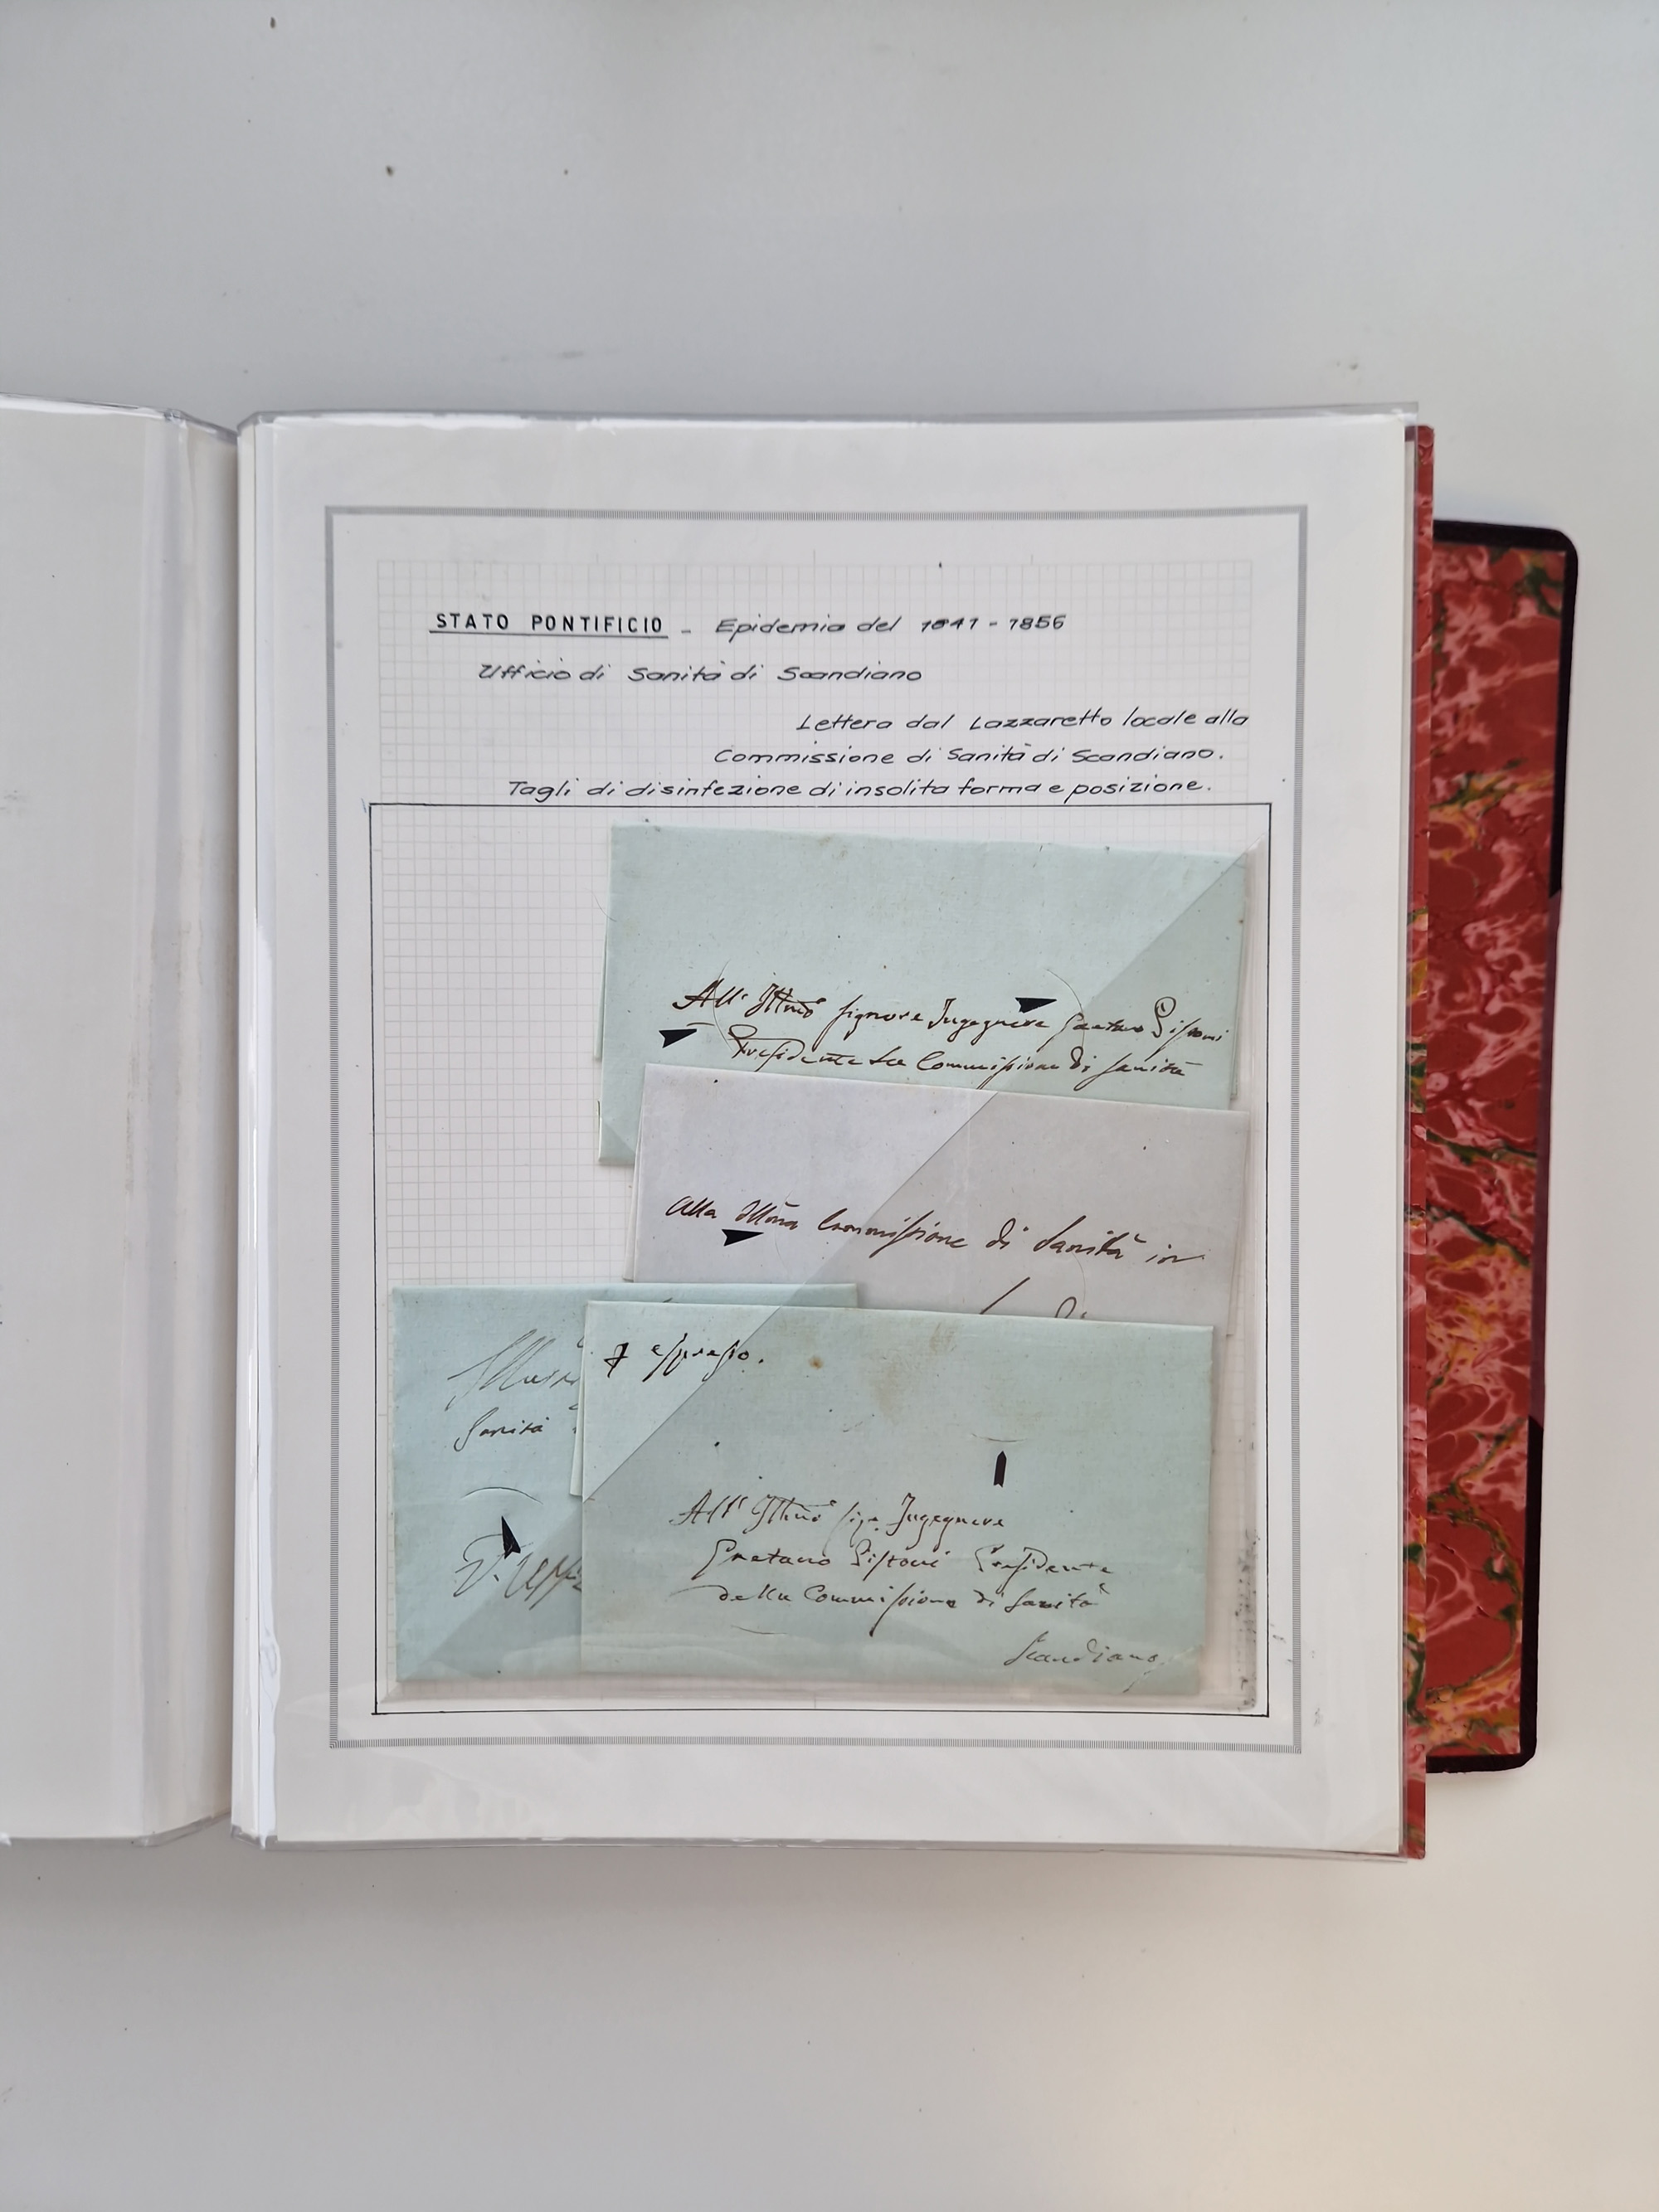 STATO PONTIFICIO - Epidemia del 1841 - 1856
Ufficio di Sanità di Scandiano
Lettera dal Lazzaretto locale alla
Commissione di Sanità di Scandiano.
Tagli di disinfezione di insolita forma e posizione.
All' Illmo Signore Ingegnere Gaetano Pistoni
Presidente La Commissione di Sanità
Alla Illma Commissione di Sanità in
Sanità
espresso.
All' Illmo Sigr. Ingegnere
Gaetano Pistoni Presidente
della Commissione di Sanità
Scandiano